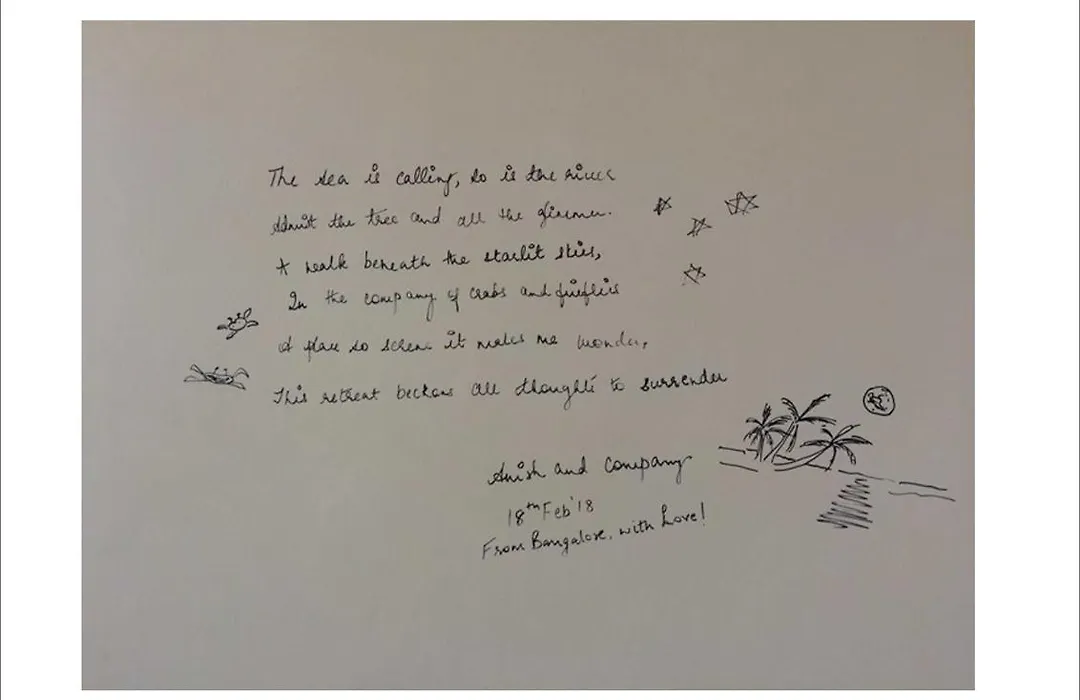 The sea is calling, so is the river
Admist the tree and all the glimmer.
A walk beneath the starlit skies,
In the company of crabs and fireflies
A place so serene it makes me wonder,
This retreat beckons all thoughts to surrender
Anish and company
18th Feb '18
From Bangalore, with Love!